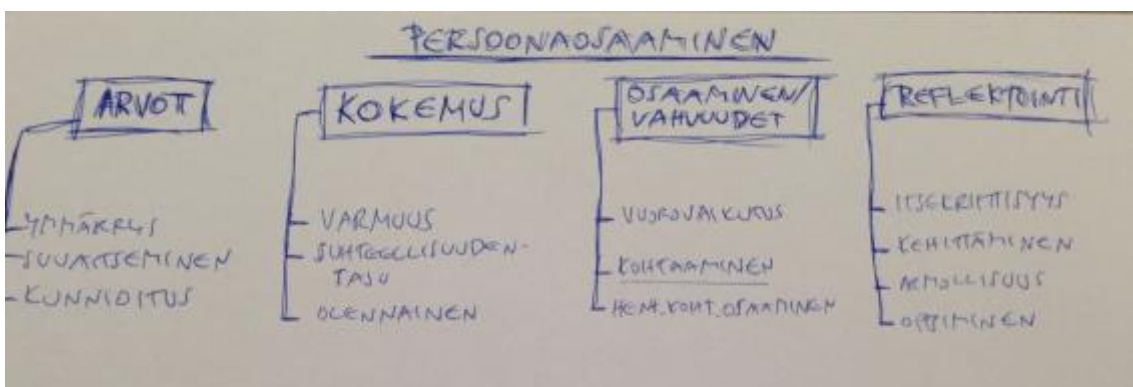 PERSOONAOSAAMINEN
ARVOT
YMMÄRRYS
SUVAITSEMINEN
KUNNIOITUS
KOKEMUS
VARMUUS
SUHTEELLISUUDEN-
TAJU
OLENNAINEN
OSAAMINEN/
VAHVUUDET
VUOROVAIKUTUS
KOHTAAMINEN
HENK.KOHT.OSAAMINEN
REFLEKTOINTI
ITSEKRIITTISYYS
KEHITTÄMINEN
ARMOLLISUUS
OPPIMINEN